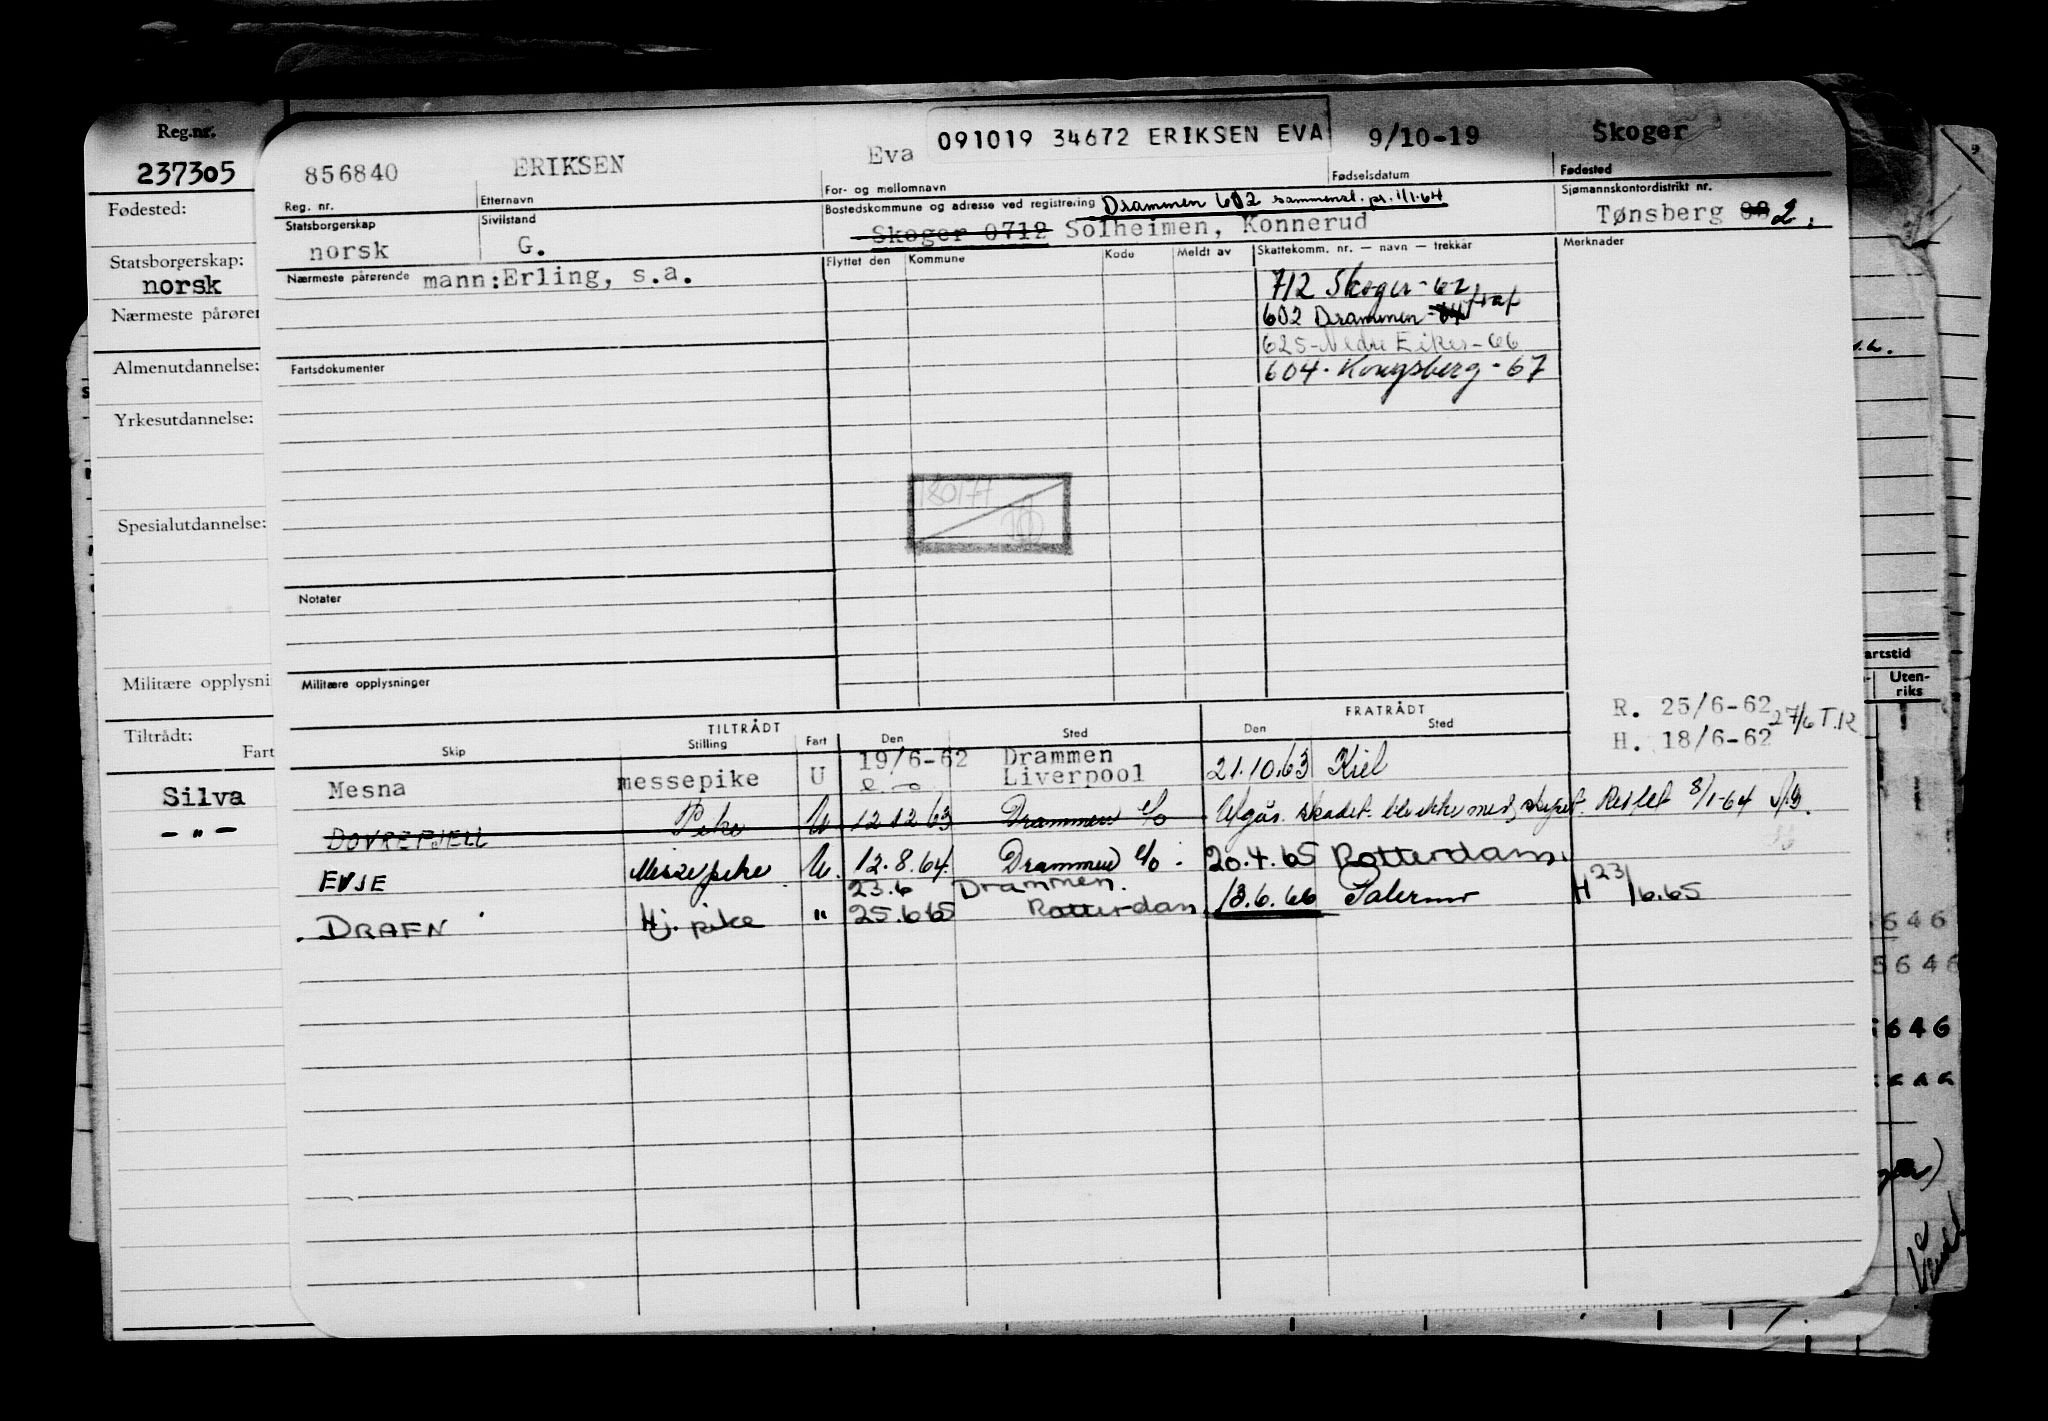 Reg.nr.
237305
Fødested:
Statsborgerskap:
norsk
Nærmeste pårører
Almenutdannelse:
Yrkesutdannelse:
Spesialutdannelse:
Militære opplysni
Tiltrådt:
Fart
Silva
— " —
091019 34672 ERIKSEN EVA
856840 ERIKSEN Eva 9/10-19 Skoger
Reg. nr. Etternavn For- og mellomnavn Fødselsdatum Fødested
Statsborgerskap Sivilstand Bostedskommune og adresse ved registrering Drammen 602 sammensl. pr. 1/1-64 Sjømannskontordistrikt nr.
norsk G. Skoger 0712 Solheimen, Konnerud Tønsberg 2.
Nærmeste pårørende mann:Erling, s.a. Flyttet den Kommune Kode Meldt av Skattekomm. nr. — navn — trekkår Merknader
712 Skoger-62
602 Drammen-64
625-Nedre Eiker-66
604-Kongsberg-67
Fartsdokumenter
180177
Notater
Militære opplysninger
TILTRÅDT FRATRÅDT
Skip Stilling Fart Den Sted Den Sted
R. 25/6-62 27/6 T.R
H. 18/6-62
19/6-62 Drammen
Mesna messepike U Liverpool 21.10.63 Kiel
DOVREFJELL Pike U 12.12.63 Drammen e/o Utgår. skadet. ble ikke med skipet. Res/et 8/1-64
EVJE Messepike U. 12.8.64 Drammen e/o 20.4.65 Rotterdam.
23.6 Drammen.
DRAFN Hj. pike " 25.6.65 Rotterdam 13.6.66 Palermo H 23/6.65
artstid
Uten-
riks
646
5646
646